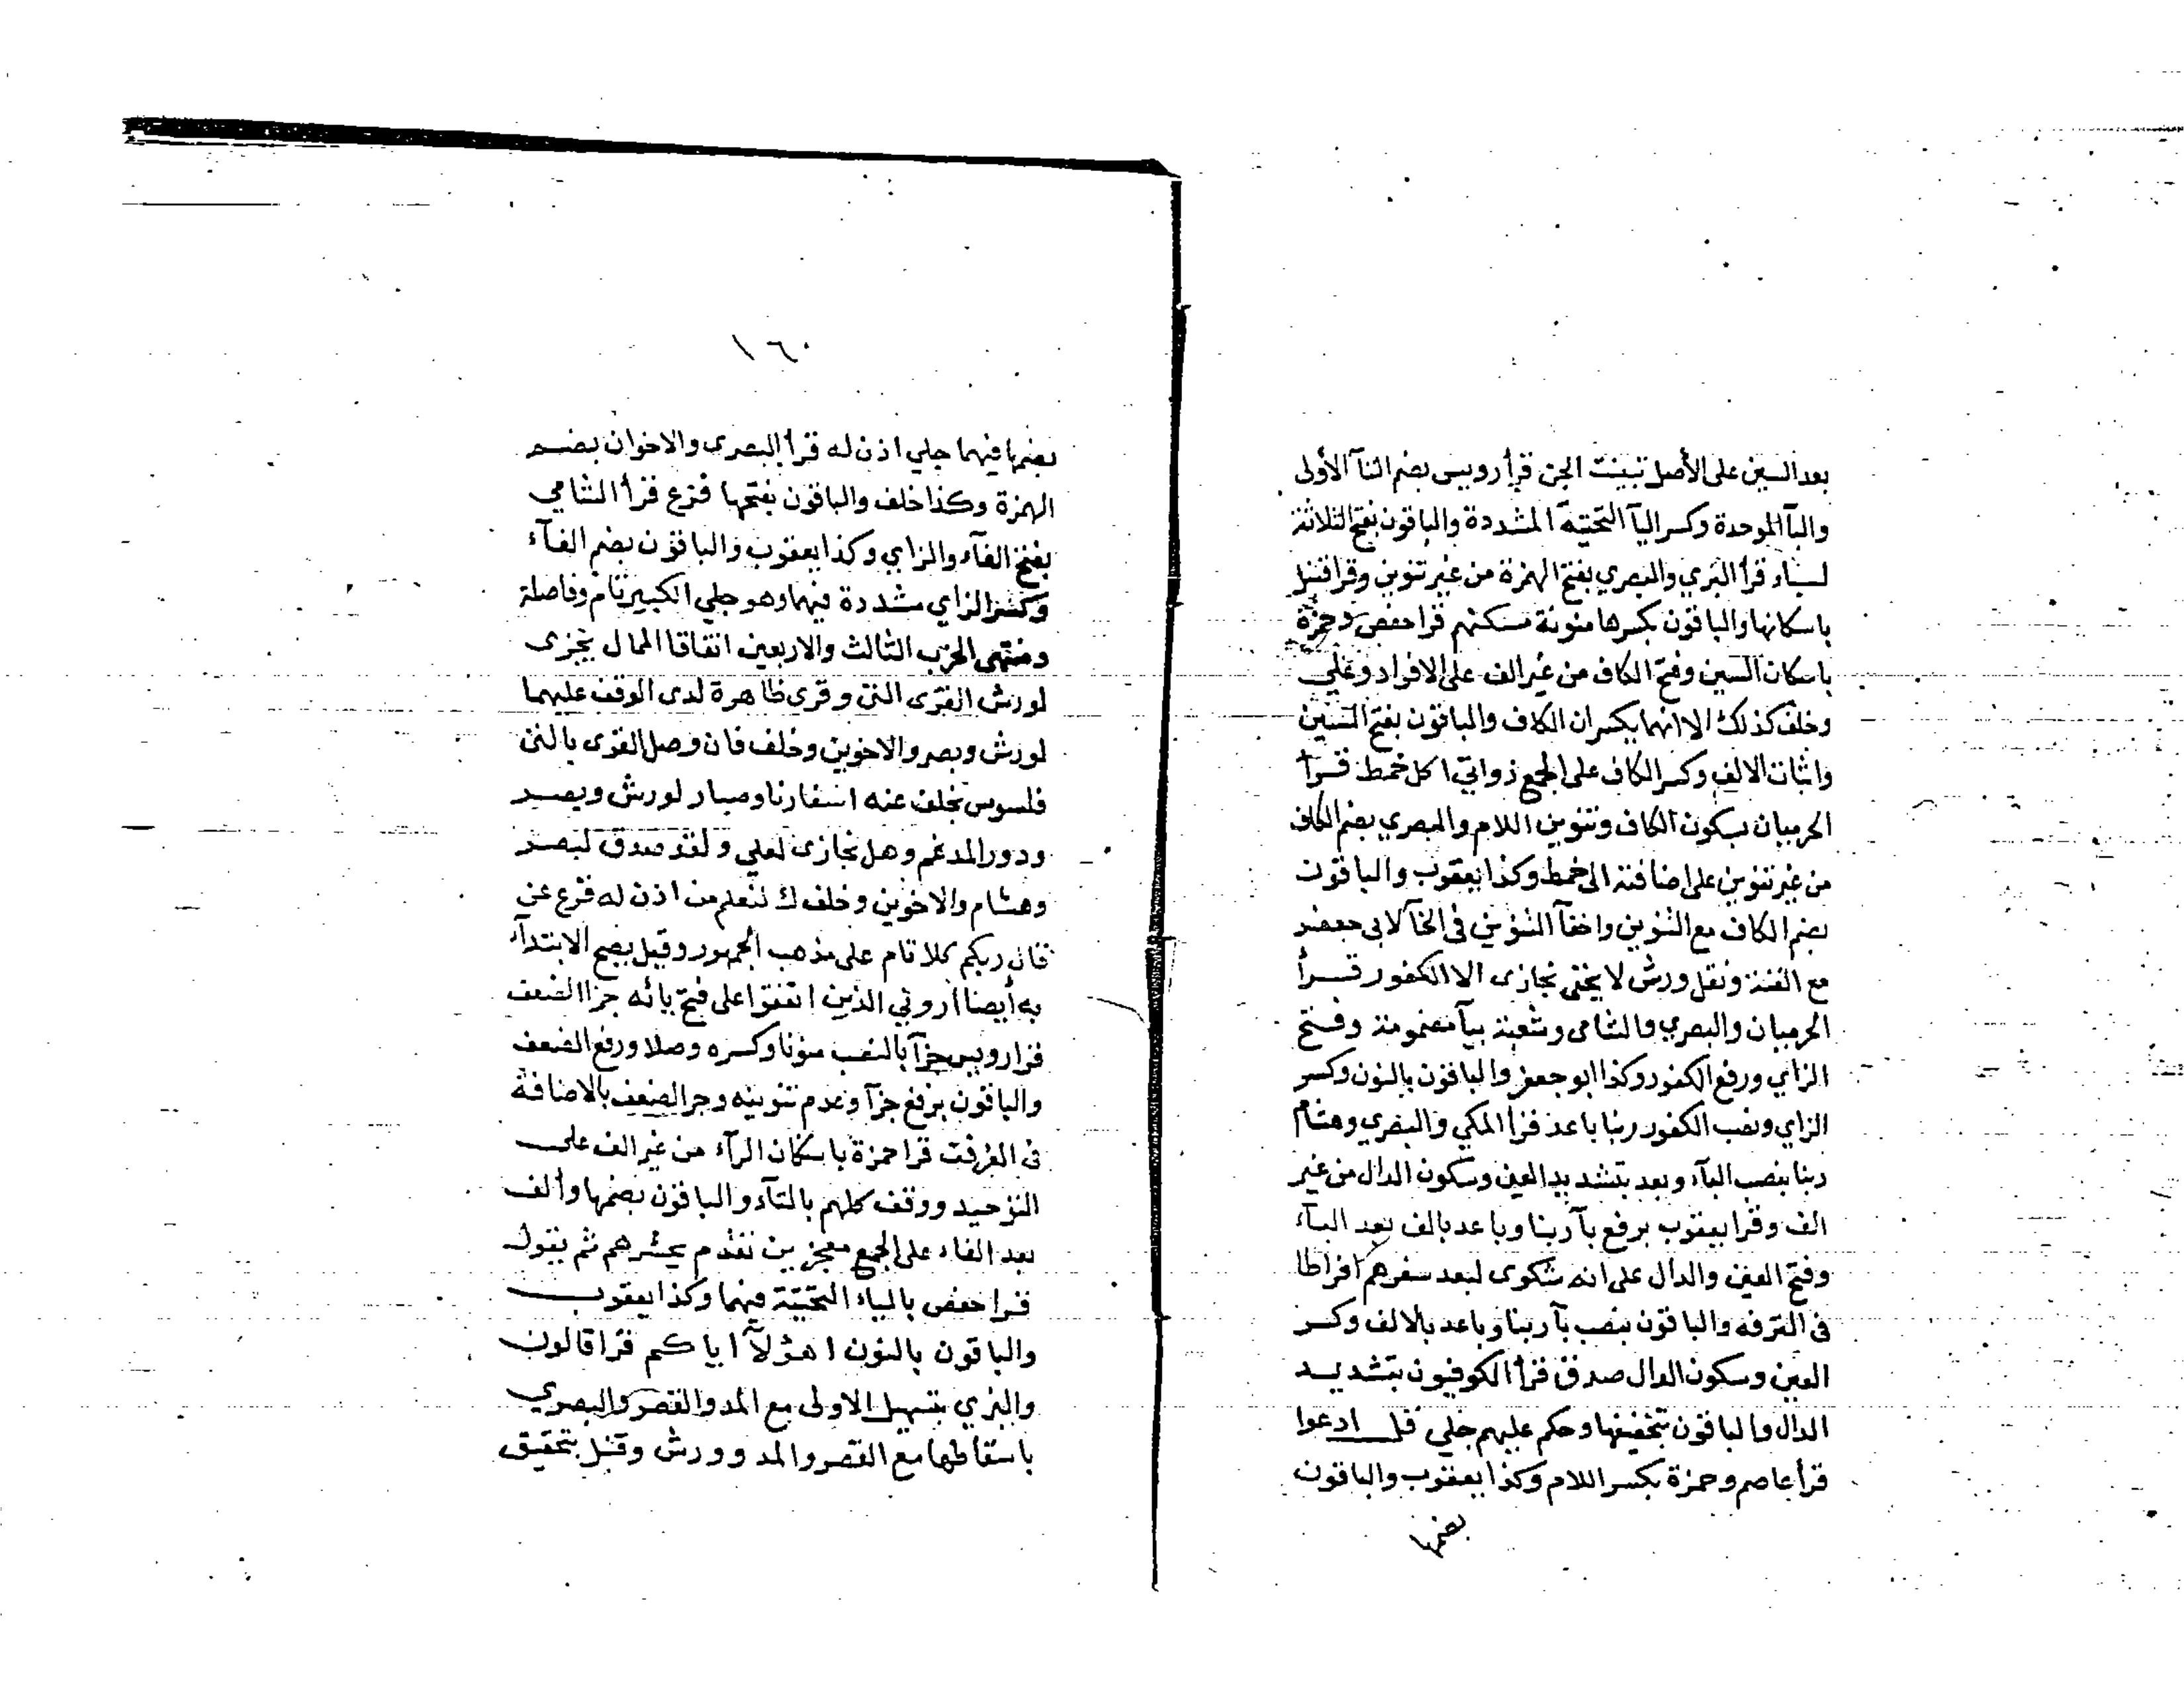 بعد السين على الأصل تبينت الجن قرأ رويس بضم التآ الأولى
والبآ الموحدة وكسر اليآ التحتية المشددة والباقون بفتح الثلاثة
لسباء قرأ البزي والبصري بفتح الهمزة من غير تنوين وقرا قنبل
باسكانها والباقون بكسرها منونة مسكنهم قرا حفص وحمزة
باسكان السين وفتح الكاف من غير الف على الافراد وعلي
وخلف كذلك الا انهما يكسران الكاف والباقون بفتح السين
واثبات الالف وكسر الكاف على الجمع ذواتي اكل خمط قرا
الحرميان بسكون الكاف وتنوين اللام والبصري بضم الكاف
من غير تنوين على اضافته الى خمط وكذا يعقوب والباقون
بضم الكاف مع التنوين واخفآ التنوين فى الخآ لابى جعفر
مع الغنة ونقل ورش لا يخفى نجازى الا الكفور قرأ
الحرميان والبصري والشامى وشعبة بيآ مضمومة وفتح
الزاي ورفع الكفور وكذا ابو جعفر والباقون بالنون وكسر
الزاي ونصب الكفور ربنا باعد قرأ المكي والبصري وهشام
ربنا بنصب البآء وبعد بتشديد العين وسكون الدال من غير
الف وقرا يعقوب برفع بآ ربنا وباعد بالف بعد البآء
وفتح العين والدال على انه شكوى لبعد سفرهم افراطا
فى الترفه والباقون بنصب بآ ربنا وباعد بالالف وكسر
العين وسكون الدال صدق قرأ الكوفيون بتشديد
الدال والباقون بتخفيفها وحكم عليهم جلي قل ادعوا
قرأ عاصم وحمزة بكسر اللام وكذا يعقوب والباقون
بضمها
١٦٠
بضمها فيهما جلي اذن له قرأ البصرى والاخوان بضم
الهمزة وكذا خلف والباقون بفتحها فزع قرأ الشامي
بفتح الفآء والزاي وكذا يعقوب والباقون بضم الفآء
وكسر الزاي مشددة فيهما وهو جلي الكبير تام وفاصلة
ومنتهى الحزب الثالث والاربعين اتفاقا الممال يجزى
لورش القرى التى وقرى ظاهرة لدى الوقف عليهما
لورش وبصر والاخوين وخلف فان وصل القرى بالتى
فلسوس بخلف عنه اسفارنا وصبار لورش وبصر
ودور المدغم وهل نجازى لعلي ولقد صدق لبصر
وهشام والاخوين وخلف ك لنعلم من اذن له فزع عن
قال ربكم كلا تام على مذهب الجمهور وقيل يصح الابتدآء
به أيضا اروني الذين اتفقوا على فتح يائه جزا الضعف
قرا رويس جزآ بالنصب منونا وكسره وصلا ورفع الضعف
والباقون برفع جزآ وعدم تنوينه وجر الضعف بالاضافة
فى الغرفت قرا حمزة باسكان الرآء من غير الف على
التوحيد ووقف كلهم بالتآء والباقون بضمها وألف
بعد الفاء على الجمع معجزين تقدم يحشرهم ثم يقول
قرا حفص بالياء التحتية فيهما وكذا يعقوب
والباقون بالنون اهؤلآ اياكم قرا قالون
والبزي بتسهيل الاولى مع المد والقصر والبصري
باسقاطها مع القصر والمد وورش وقنبل بتحقيق